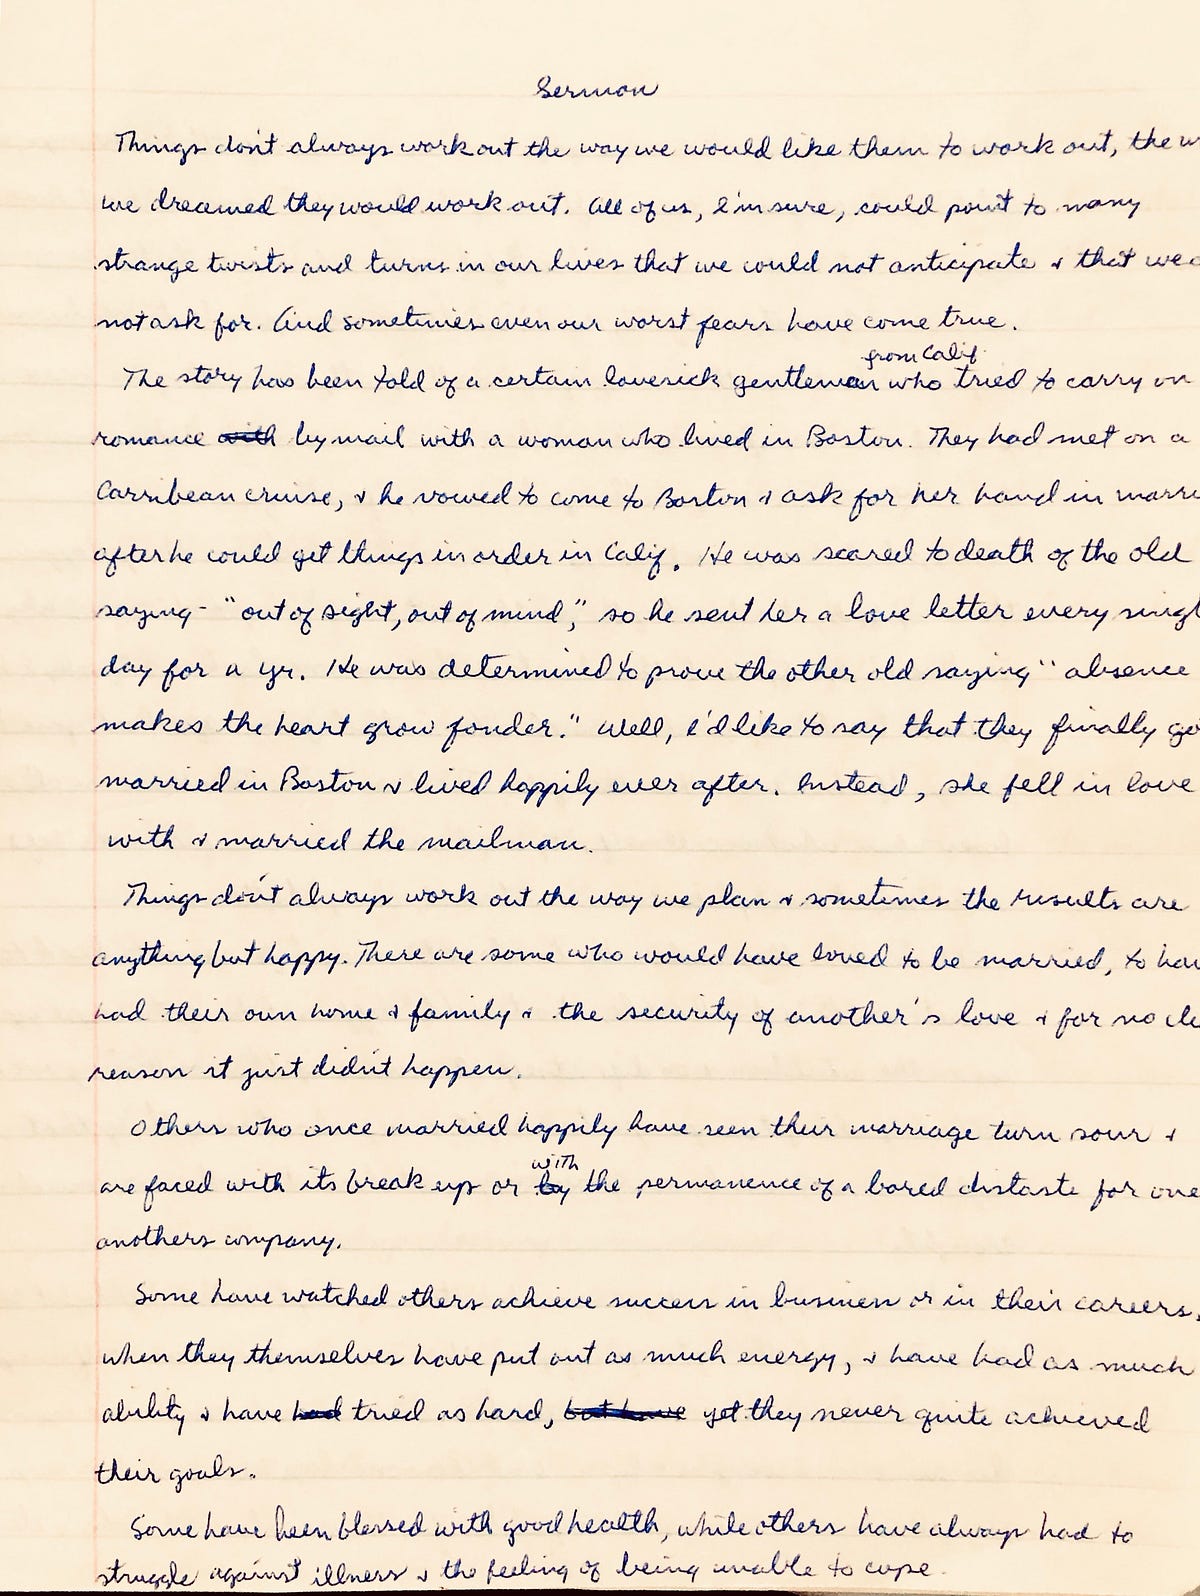 Sermon
Things don't always work out the way we would like them to work out, the w
we dreamed they would work out. All of us, I'm sure, could point to many
strange twists and turns in our lives that we could not anticipate & that we
not ask for. And sometimes even our worst fears have come true.
from Calif.
The story has been told of a certain lovesick gentleman who tried to carry on
romance with by mail with a woman who lived in Boston. They had met on a
Carribean cruise, & he vowed to come to Boston & ask for her hand in marri
after he could get things in order in Calif. He was scared to death of the old
saying - "out of sight, out of mind," so he sent her a love letter every singl
day for a yr. He was determined to prove the other old saying "absence
makes the heart grow fonder." Well, I'd like to say that they finally go
married in Boston & lived happily ever after. Instead, she fell in love
with & married the mailman.
Things don't always work out the way we plan & sometimes the results are
anything but happy. There are some who would have loved to be married, to hav
had their own home & family & the security of another's love & for no cle
reason it just didn't happen.
Others who once married happily have seen their marriage turn sour &
with
are faced with its break up or by the permanence of a bored distaste for one
anothers company.
Some have watched others achieve success in business or in their careers,
when they themselves have put out as much energy, & have had as much
ability & have had tried as hard, but have yet they never quite achieved
their goals.
Some have been blessed with good health, while others have always had to
struggle against illness & the feeling of being unable to cope.